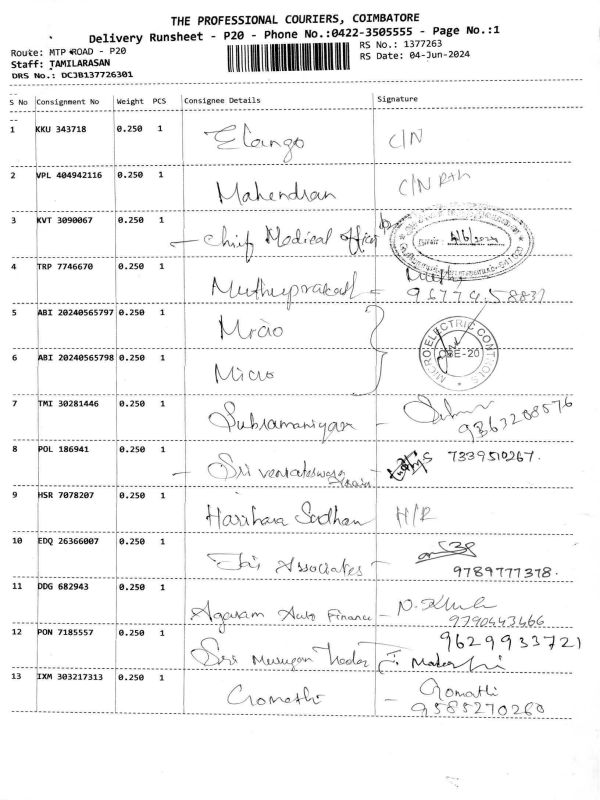 THE PROFESSIONAL COURIERS, COIMBATORE
Delivery Runsheet - P20 - Phone No.:0422-3505555 - Page No.:1
Route: MTP ROAD - P20
RS No.: 1377263
Staff: TAMILARASAN
RS Date: 04-Jun-2024
DRS No.: DCJB137726301
S No Consignment No Weight PCS Consignee Details Signature
1 KKU 343718 0.250 1 Elango C/N
2 VPL 404942116 0.250 1 Mahendran C/N
3 KVT 3090067 0.250 1 - Chief Medical Officer
4 TRP 7746670 0.250 1 Muthuprakash -
5 ABI 20240565797 0.250 1 Micro
6 ABI 20240565798 0.250 1 Micro
MICRO ELECTRIC CONTROLS
CBE-20
7 TMI 30281446 0.250 1 Subramaniyar -
9363288576
8 POL 186941 0.250 1 - Sri venkateswara -
7339510267.
9 HSR 7078207 0.250 1 Harihara Sudhan H/R
10 EDQ 26366007 0.250 1 Jai Associates -
9789777378.
11 DDG 682943 0.250 1 Agaram Auto Finance -
9790443466
12 PON 7185557 0.250 1 Sri Murugan Trader
9629933721
13 IXM 303217313 0.250 1 Gomathi - Gomathi
9585270260